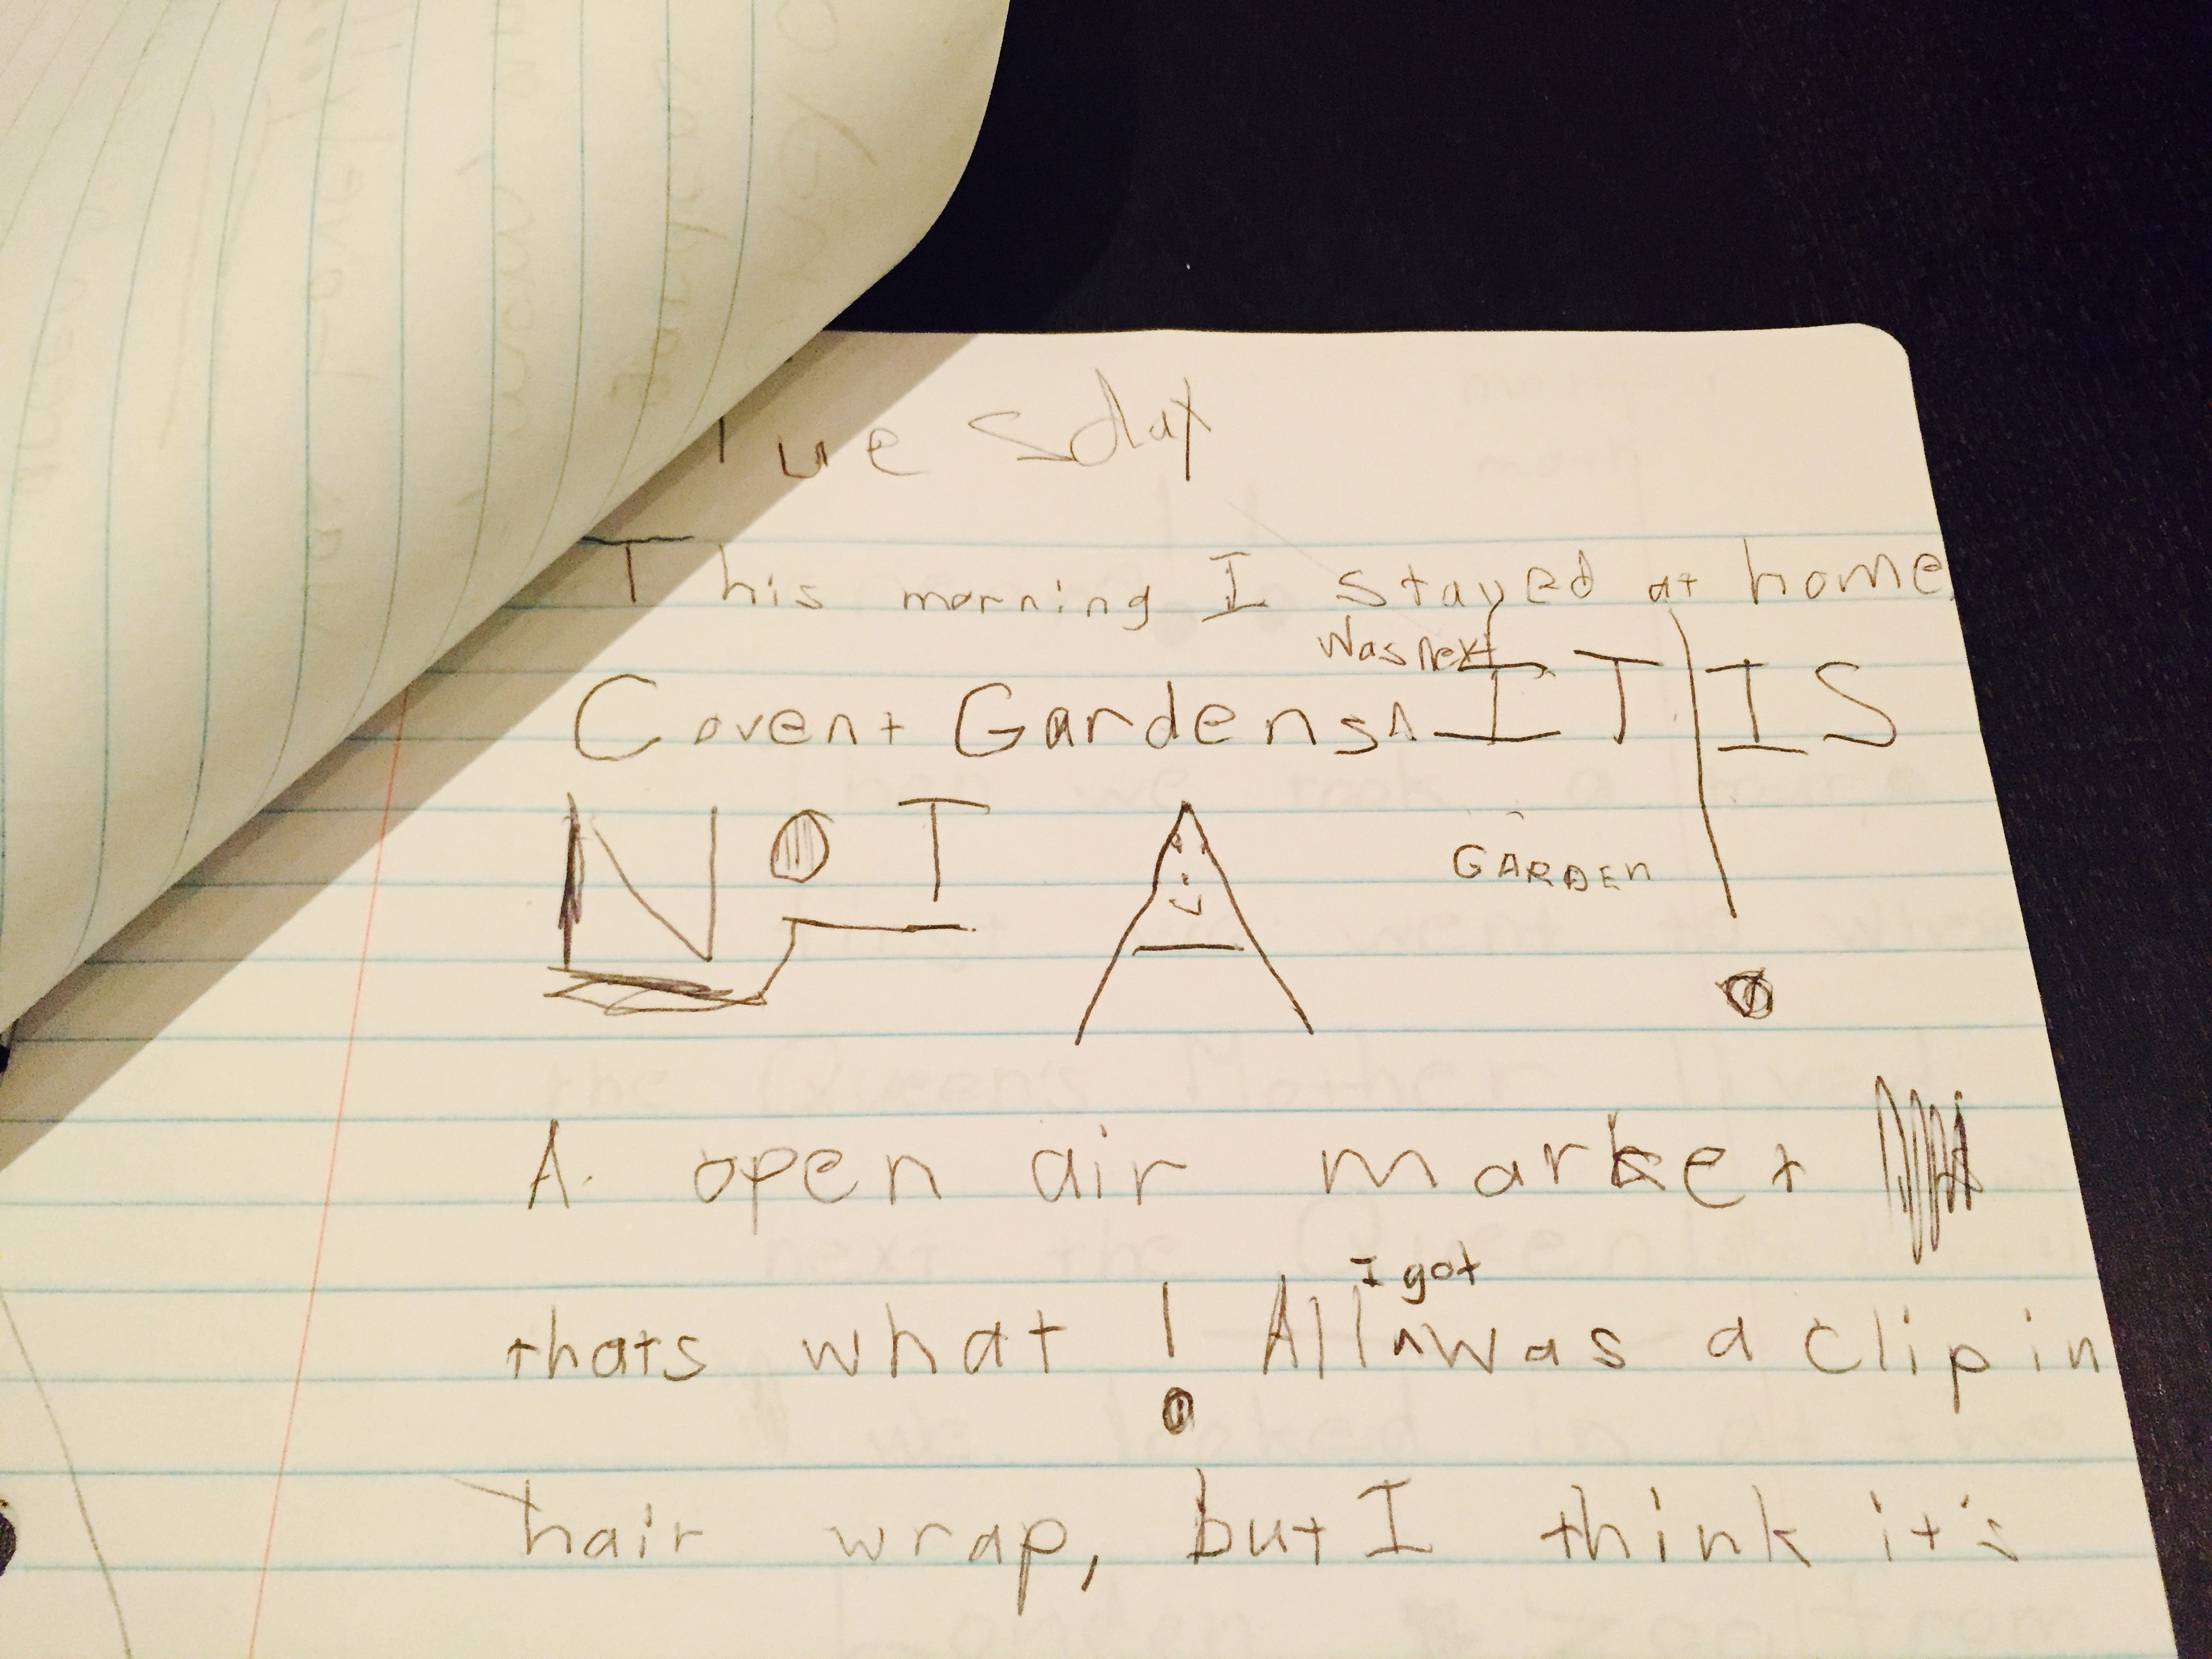 Tuesday
This morning I stayed at home.
was next
Covent Gardens^ IT IS
NOT A GARDEN!
A open air market
thats what! All^was a clip in
I got
hair wrap, but I think it's